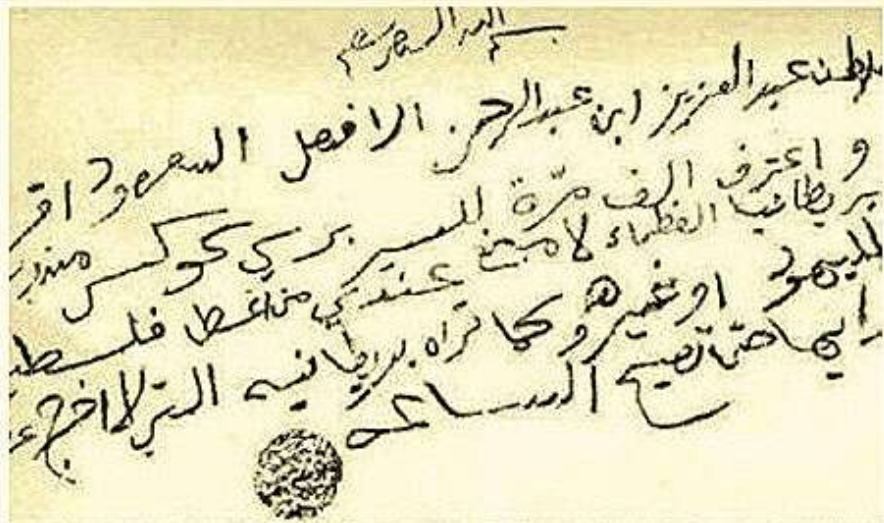 بسم الله الرحمن الرحيم
السلطان عبد العزيز ابن عبد الرحمن الا فيصل السعود اقر
و اعترف الف مرّة للسير برسي كوكس مندوب
بريطانيا العظماء لا مانع عندي من اعطا فلسطين
لليهود او غيرهم وكما تراه بريطانيه التي لا اخرج عن
رايها حتى تصيح الساعه